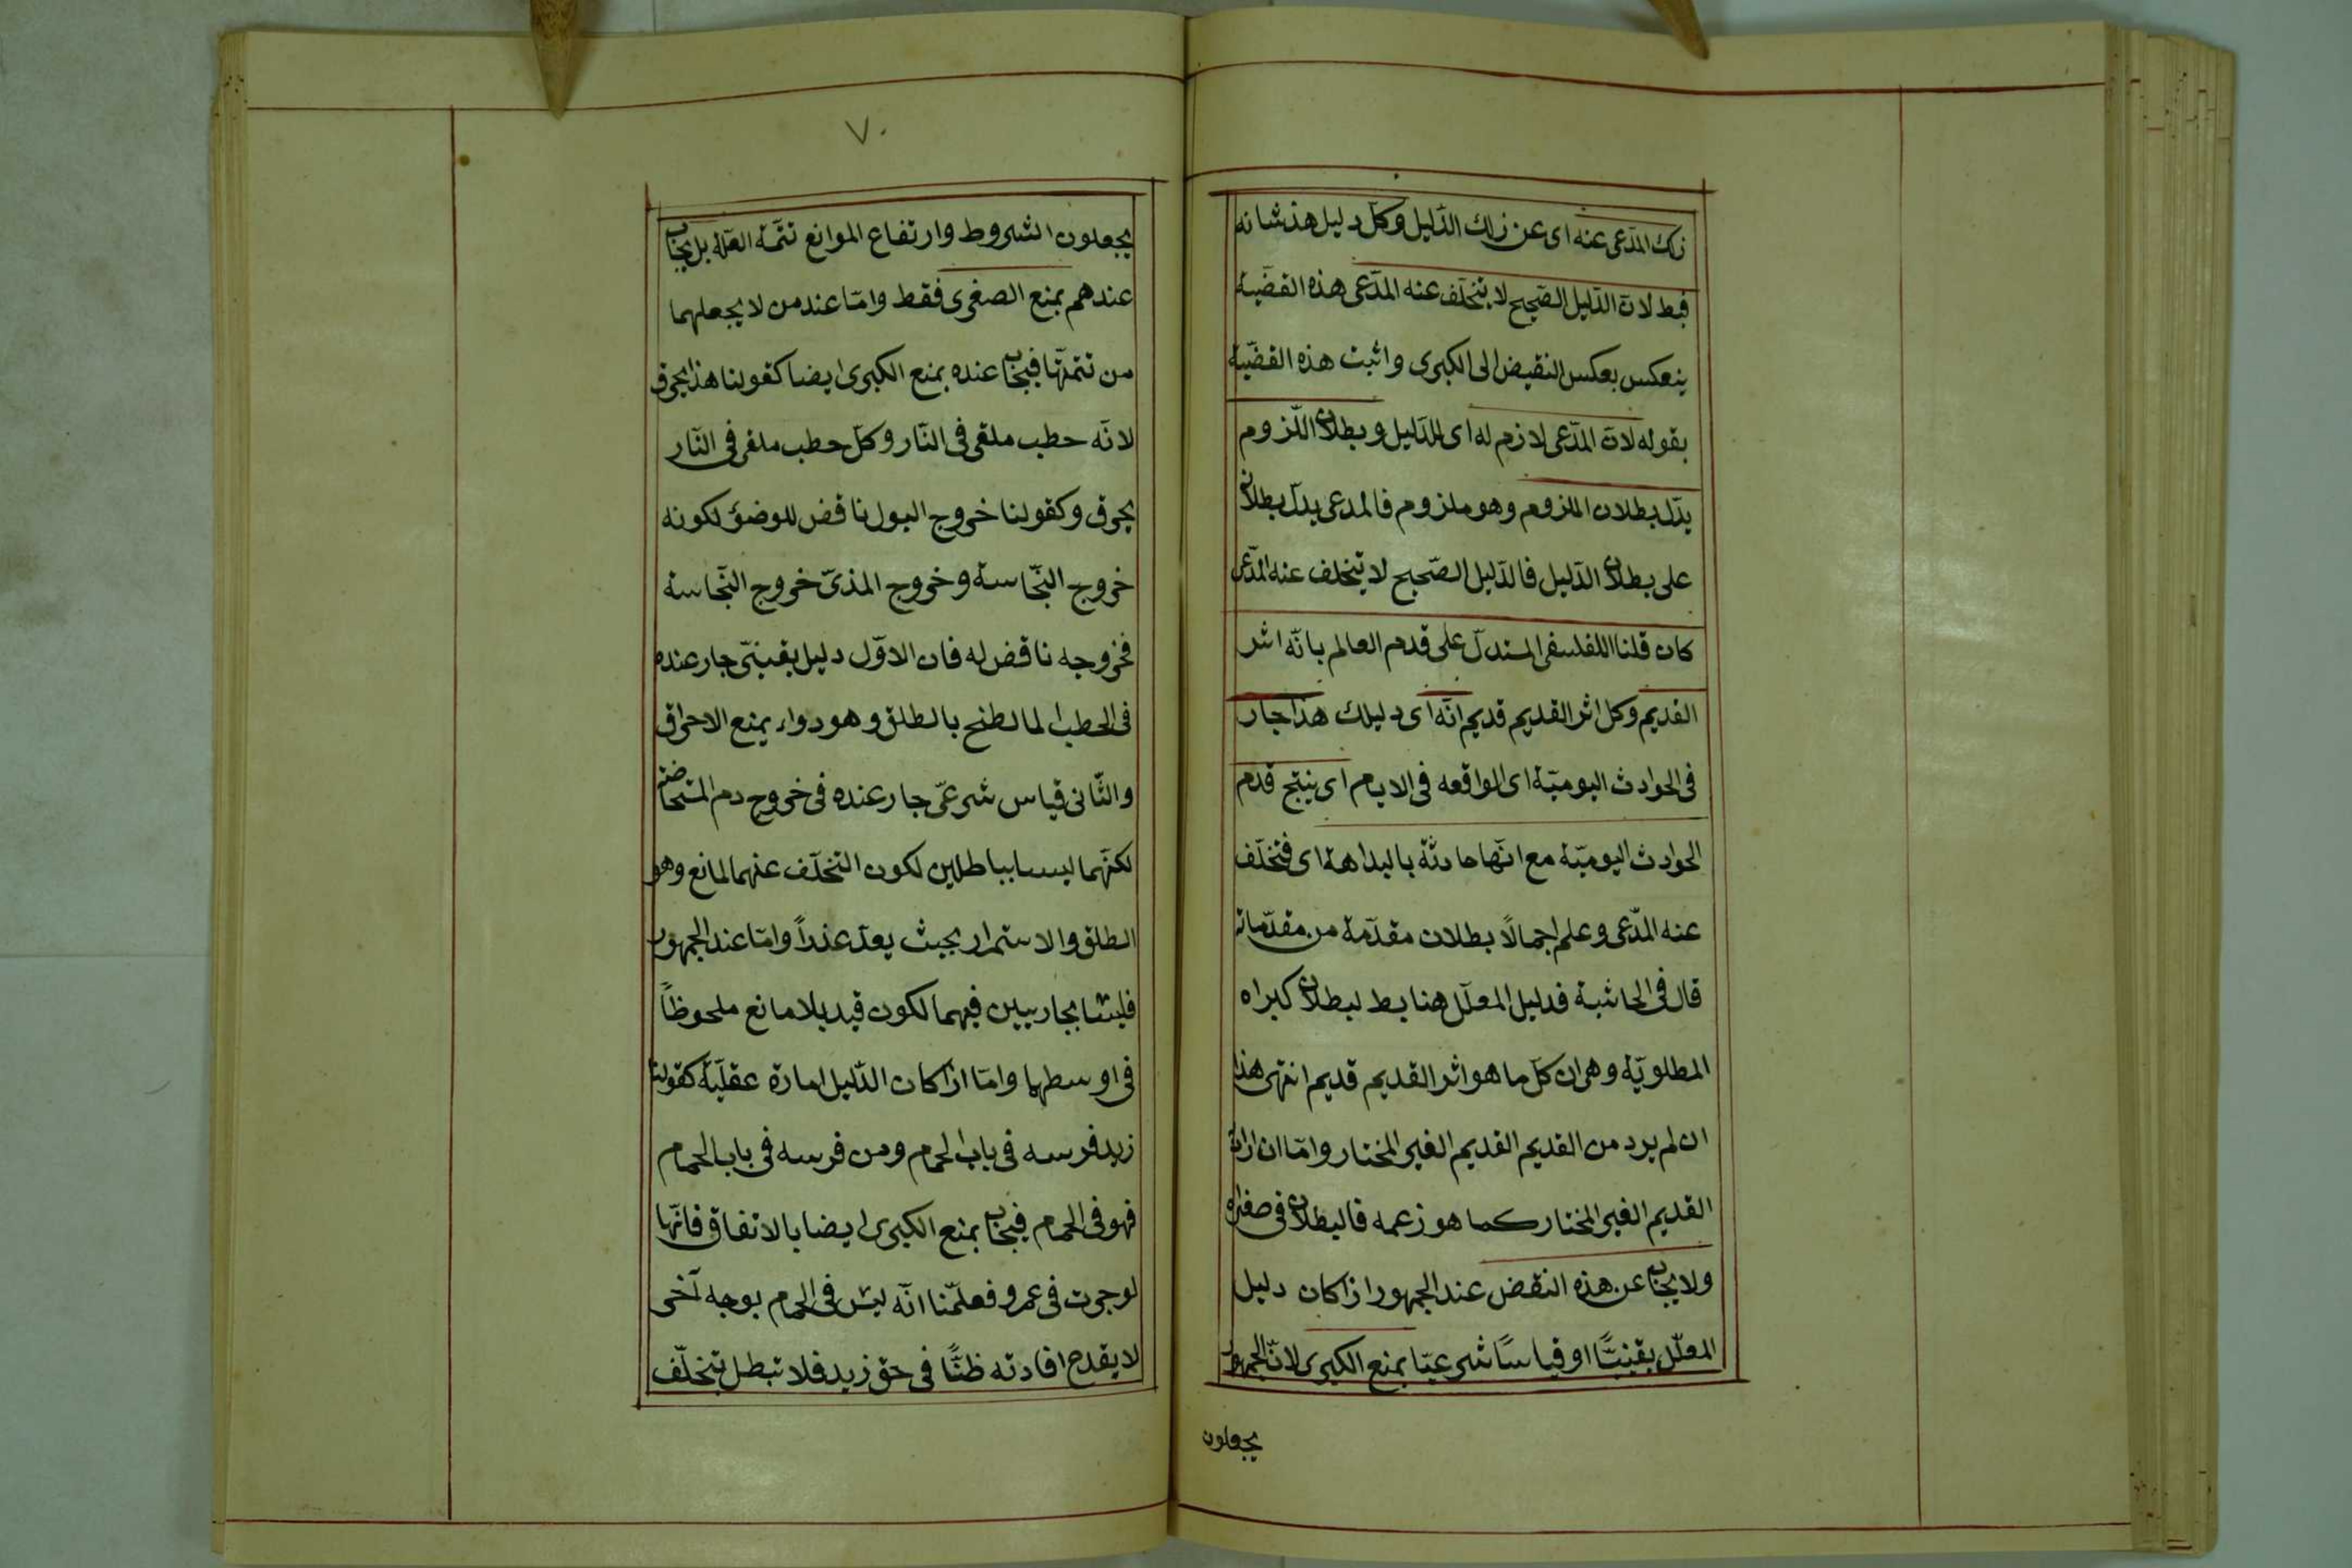 ذلك المدّعى عنه اى عن ذلك الدّليل وكلّ دليل هذ شانه
فبط لانّ الدّليل الصّحيح لا يتخلّف عنه المدّعى هذه القضيّة
ينعكس بعكس النقيض الى الكبرى واثبت هذه القضيّة
بقوله لانّ المدّعى لازم له اى للدّليل وبطلان اللّزوم
يدّل بطلان الملزوم وهو ملزوم فالمدعى يدلّ بطلانه
على بطلان الدّليل فالدّليل الصّحيح لا يتخلف عنه المدّعى
كان قلنا اللفلسفى المستدلّ على قدم العالم بانّه اثر
القديم وكل اثر القديم قديم انّه اى دليلك هذا جار
فى الحوادث اليوميّة اى الواقعه فى الايام اى ينتج قدم
الحوادث اليوميّة مع انّها حادثة بالبداهة اى فتخلّف
عنه المدّعى وعلم اجمالاً بطلان مقدّمة من مقدّماته
قال فى الحاشية فدليل المعلّل هنا بط لبطلان كبراه
المطلويّة وهى ان كلّ ما هو اثر القديم قديم انتهى هذا
ان لم يرد من القديم القديم الغير المختار وامّا ان اراد
القديم الغير المختار كما هو زعمه فالبطلان فى صغراه
ولا يجاب عن هذه النقض عند الجمهور اذا كان دليل
المعلّل يقينيًّا او قياسًا شرعيّا بمنع الكبرى لانّ الجمهور
يجعلون
٧٠
يجعلون الشروط وارتفاع الموانع تتمّة العلّة بل يجاب
عندهم بمنع الصغرى فقط وامّا عند من لا يجعلهما
من تتمتّها فيجاب عنده بمنع الكبرى ايضا كقولنا هذا يحرق
لانّه حطب ملقى فى النّار وكلّ حطب ملقى فى النّار
يحرق وكقولنا خروج البول ناقض للوضؤ لكونه
خروج النّجاسة وخروج المذىّ خروج النّجاسة
فخروجه ناقض له فان الاوّل دليل يقينىّ جار عنده
فى الحطب المالطخ بالطلق وهو دواء يمنع الاحراق
والثّانى قياس شرعىّ جار عنده فى خروج دم المستحاضه
لكنّهما ليسا بباطلين لكون التخلّف عنهما لمانع وهو
الطلق والاستمرار بحيث يعدّ عذراً وامّا عند الجمهور
فليسا بجاريين فيهما لكون قيد بلا مانع ملحوظاً
فى اوسطهما وامّا اذا كان الدّليل امارة عقليّة كقولنا
زيد فرسه فى باب الحمام ومن فرسه فى باب الحمام
فهو فى الحمام فيجاب بمنع الكبرى ايضا بالاتفاق فانّها
لو جرت فى عمرو فعلّمنا انّه ليس فى الحمام بوجه آخر
لا يقدح افادته ظنًّا فى حق زيد فلا تبطل بتخلّف